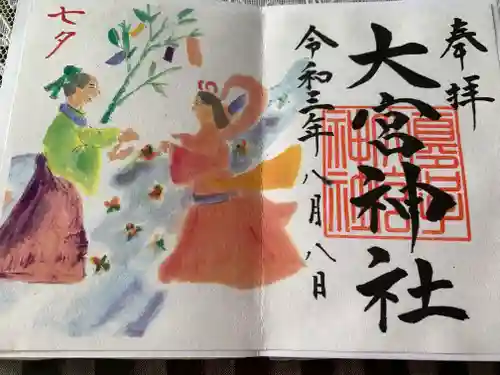 奉拝
大宮神社
令和三年八月八日
七夕